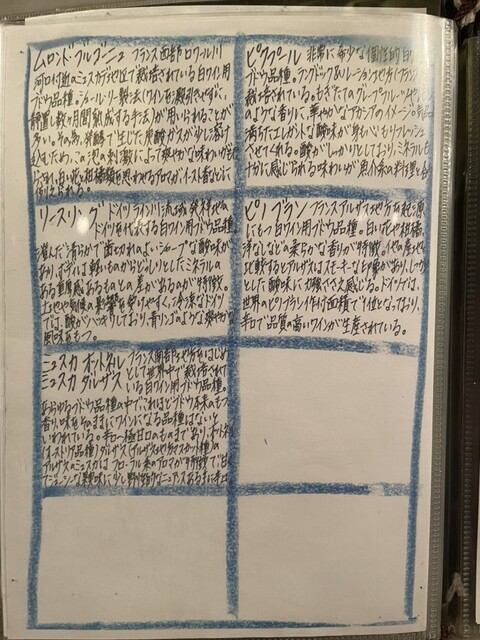 ムロンド・ブルゴーニュ フランス西部ロワール川
河口付近のミュスカデ地区で栽培されている白ワイン用
ブドウ品種。シュール・リー製法(ワインを澱引きせずに、
静置し数ヶ月間熟成する手法)が用いられることが
多い。その為、発酵で生じた炭酸ガスが少し溶け
込むため、この泡の刺激によって爽やかな味わいが
白い花や柑橘類を思わせるアロマが、イースト香などに
ピクプール 非常に希少な個性的白
ブドウ品種。ラングドック&ルーション地方(フランス)
栽培されている。もぎたてのグレープフルーツや
のような香りに、華やかなアカシアのイメージの
清らでエレガントな酸味が身も心もリフレッシュ
させてくれる。酸がしっかりとしており、ミネラルも
かに感じられる味わいが魚介系の料理と
リースリング ドイツ ライン川流域発祥地の
ドイツを代表する白ワイン用ブドウ品種。
澄んだ清らかで歯切れのよいシャープな酸味が
あり、ボディは軽いものからどっしりとしたミネラルの
ある重厚感あるものとの差があるのが特徴。
土地や気候の影響を受けやすく、冷涼なドイツ
では、酸がハッキリしており、青リンゴのような爽やかな
風味をもつ。
ピノ ブラン フランスアルザス地方を起源
にもつ白ワイン用ブドウ品種。白い花や柑橘、
洋なしなどの柔らかな香りが特徴。他の産地と
比較するとアルザスはスモーキーな印象があり、しっかり
とした酸味に力強ささえ感じる。ドイツでは、
世界のピノブラン作付面積で1位となっており、
辛口で品質の高いワインが生産されている。
ミュスカ オットネル フランス南部地方をはじめ
ミュスカ ダルザス として世界中で栽培されて
いる白ワイン用ブドウ品種。
あらゆるブドウ品種の中でこれほどブドウ本来のもつ
香り、味を そのままにワインになる品種はないと
いわれている。辛口〜極甘口のものまであり、オットネル
(オーストリア品種)ダルザス(アルザス地方マスカット種)の
アルザスのミュスカは、フローラル系のアロマが特徴で
ジューシーな果実味に少し野性的なニュアンスある